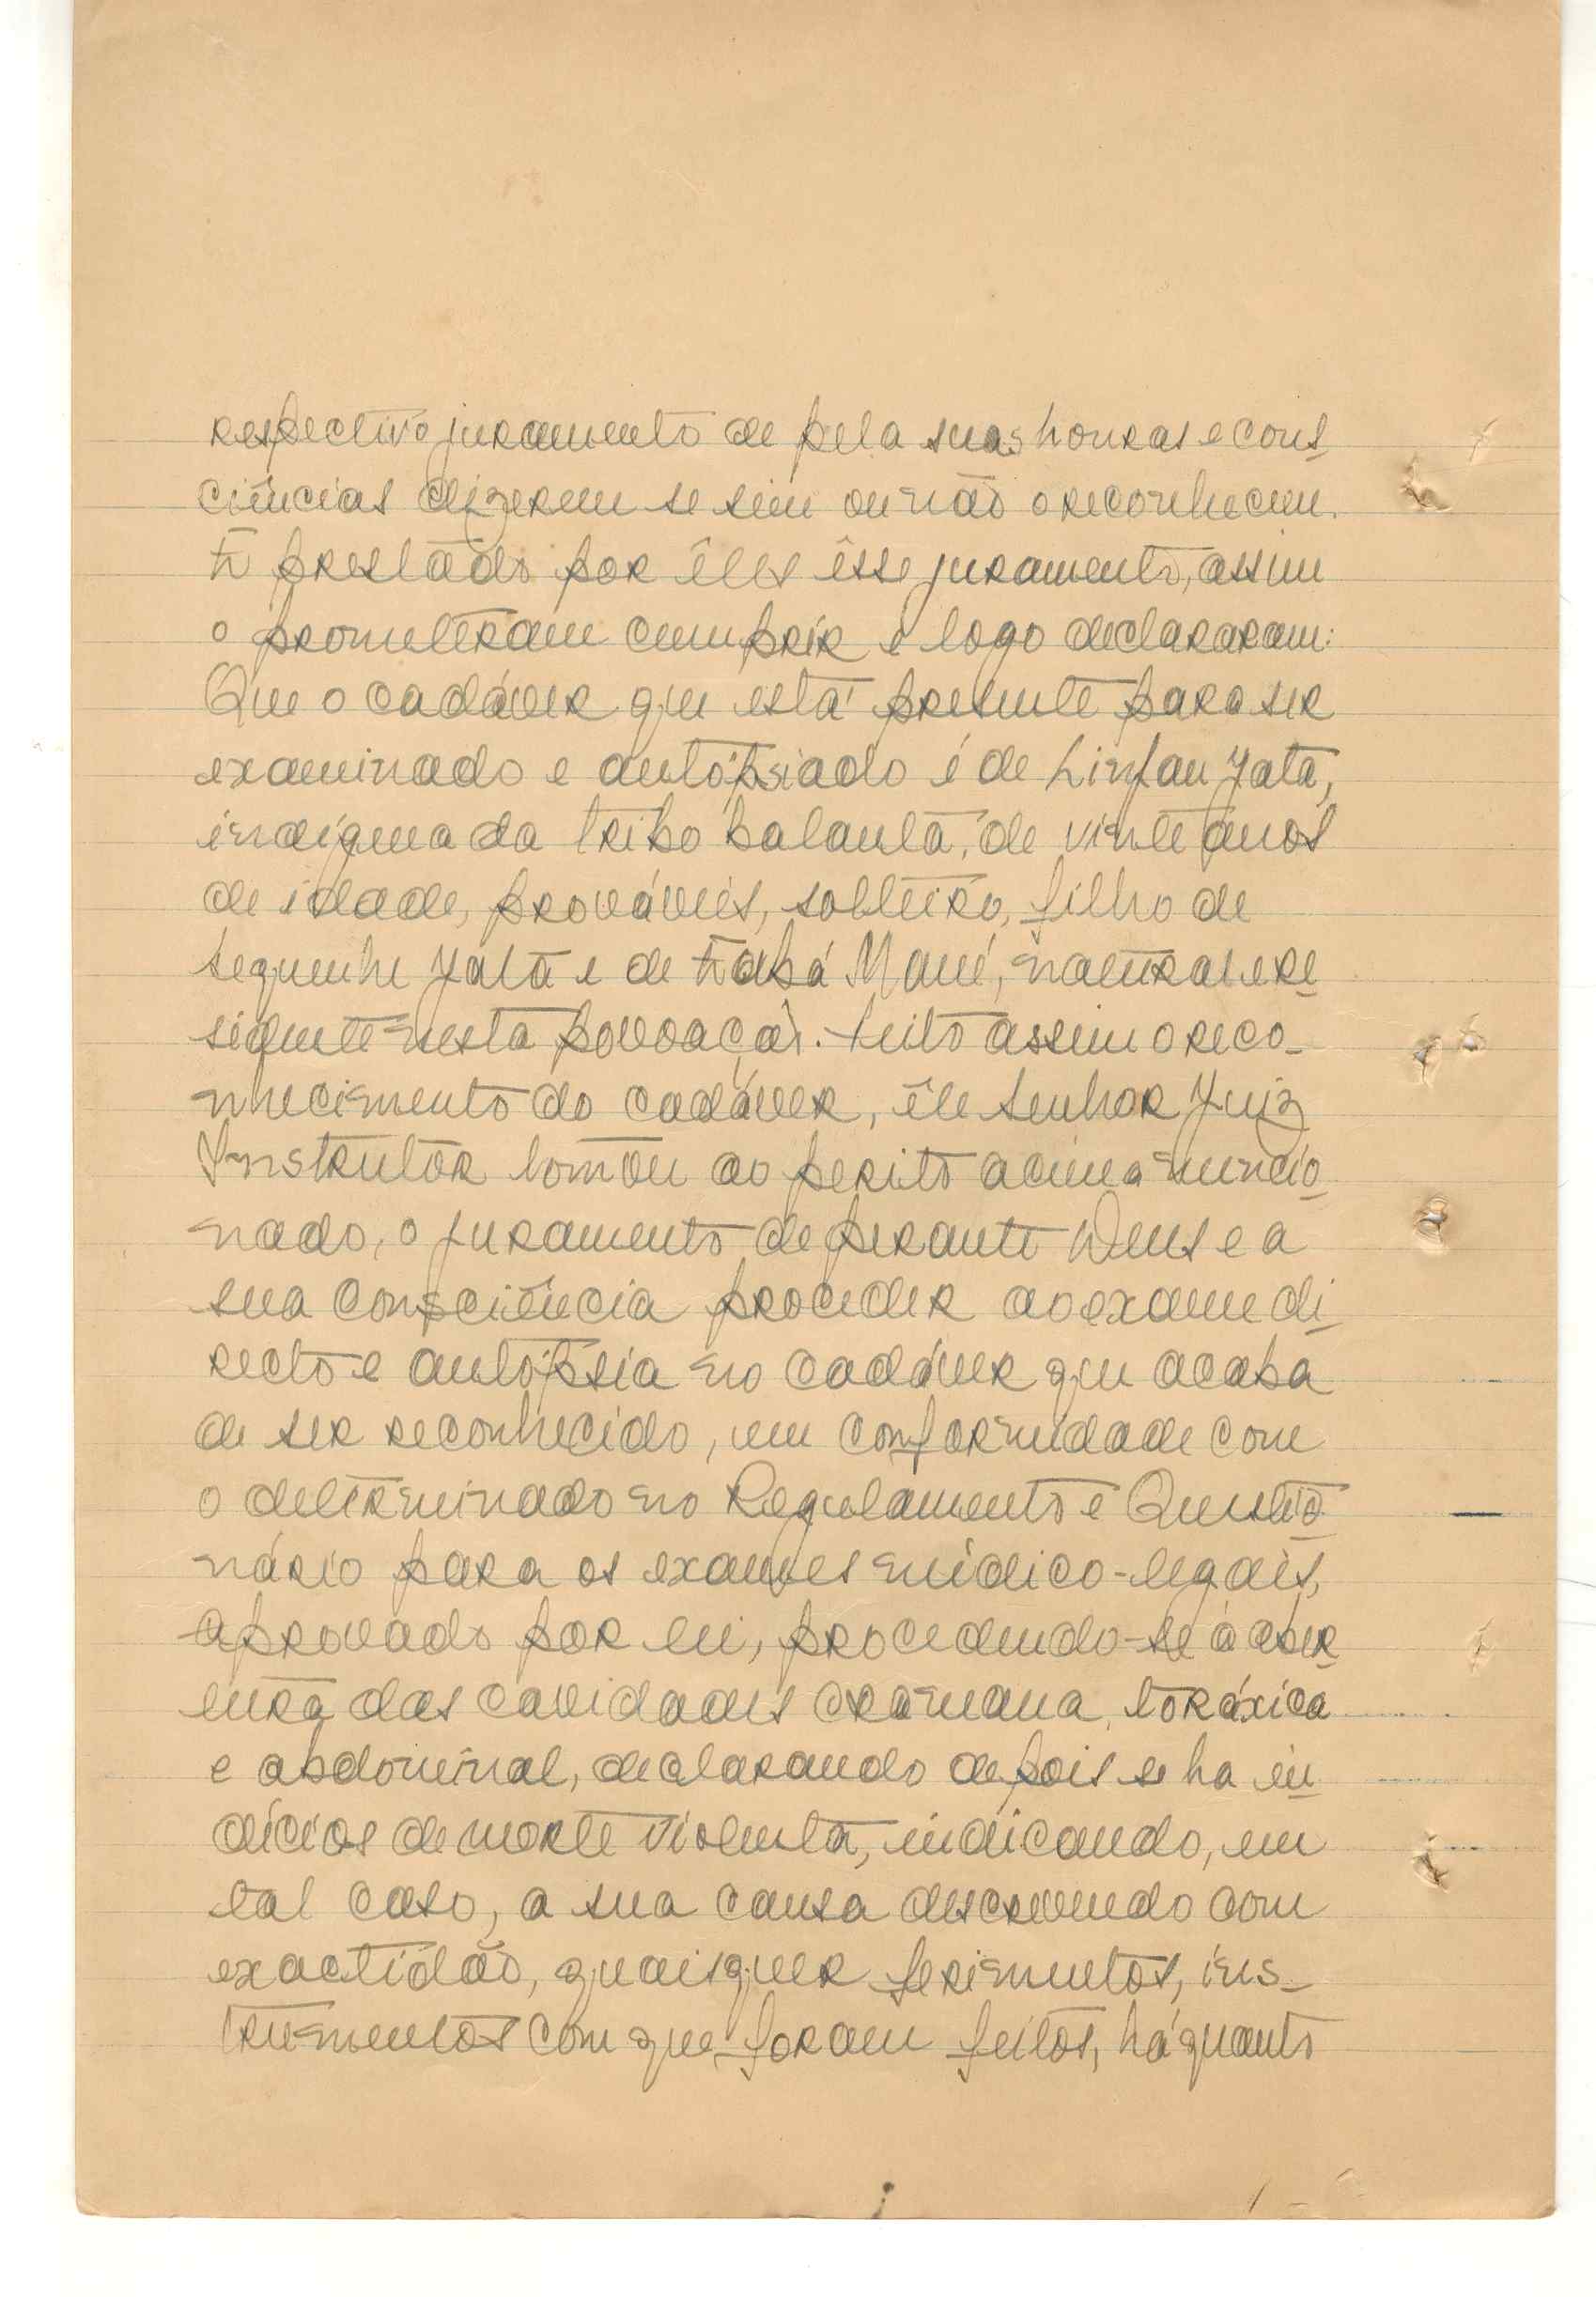 respectivo juramento de pela suas honras e cons
ciências dizerem se sim ou não o reconhecem.
E prestado por êles êsse juramento, assim
o prometeram cumprir e logo declararam:
Que o cadáver que está presente para ser
examinado e autópsiado é de Linfan Yatá,
indígena da tribo balanta, de vinte anos
de idade, prováveis, solteiro, filho de
Seguenhe Yatá e de Mané, natural e re
sidente nesta povoação. Feito assim o reco-
nhecimento do cadáver, êle Senhor Juiz
Instrutor tomou ao perito acima mencio
nado, o juramento de perante Deus e a
sua consciência proceder ao exame di
recto e autópsia no cadáver que acaba
de ser reconhecido, em conformidade com
o determinado no Regulamento e Questio
nário para os exames médico-legais,
aprovado por lei, procedendo-se à aber
tura das cavidades craneana, toráxica
e abdominal, declarando depois se ha in
dícios de morte violenta, indicando, em
tal caso, a sua causa descrevendo com
exactidão, quaisquer ferimentos, ins-
trumentos com que foram feitos, há quanto